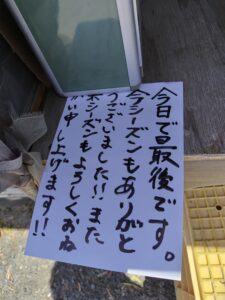 今日で最後です。
今シーズンもありがと
うございました!!また
来シーズンもよろしくおね
がい申し上げます!!